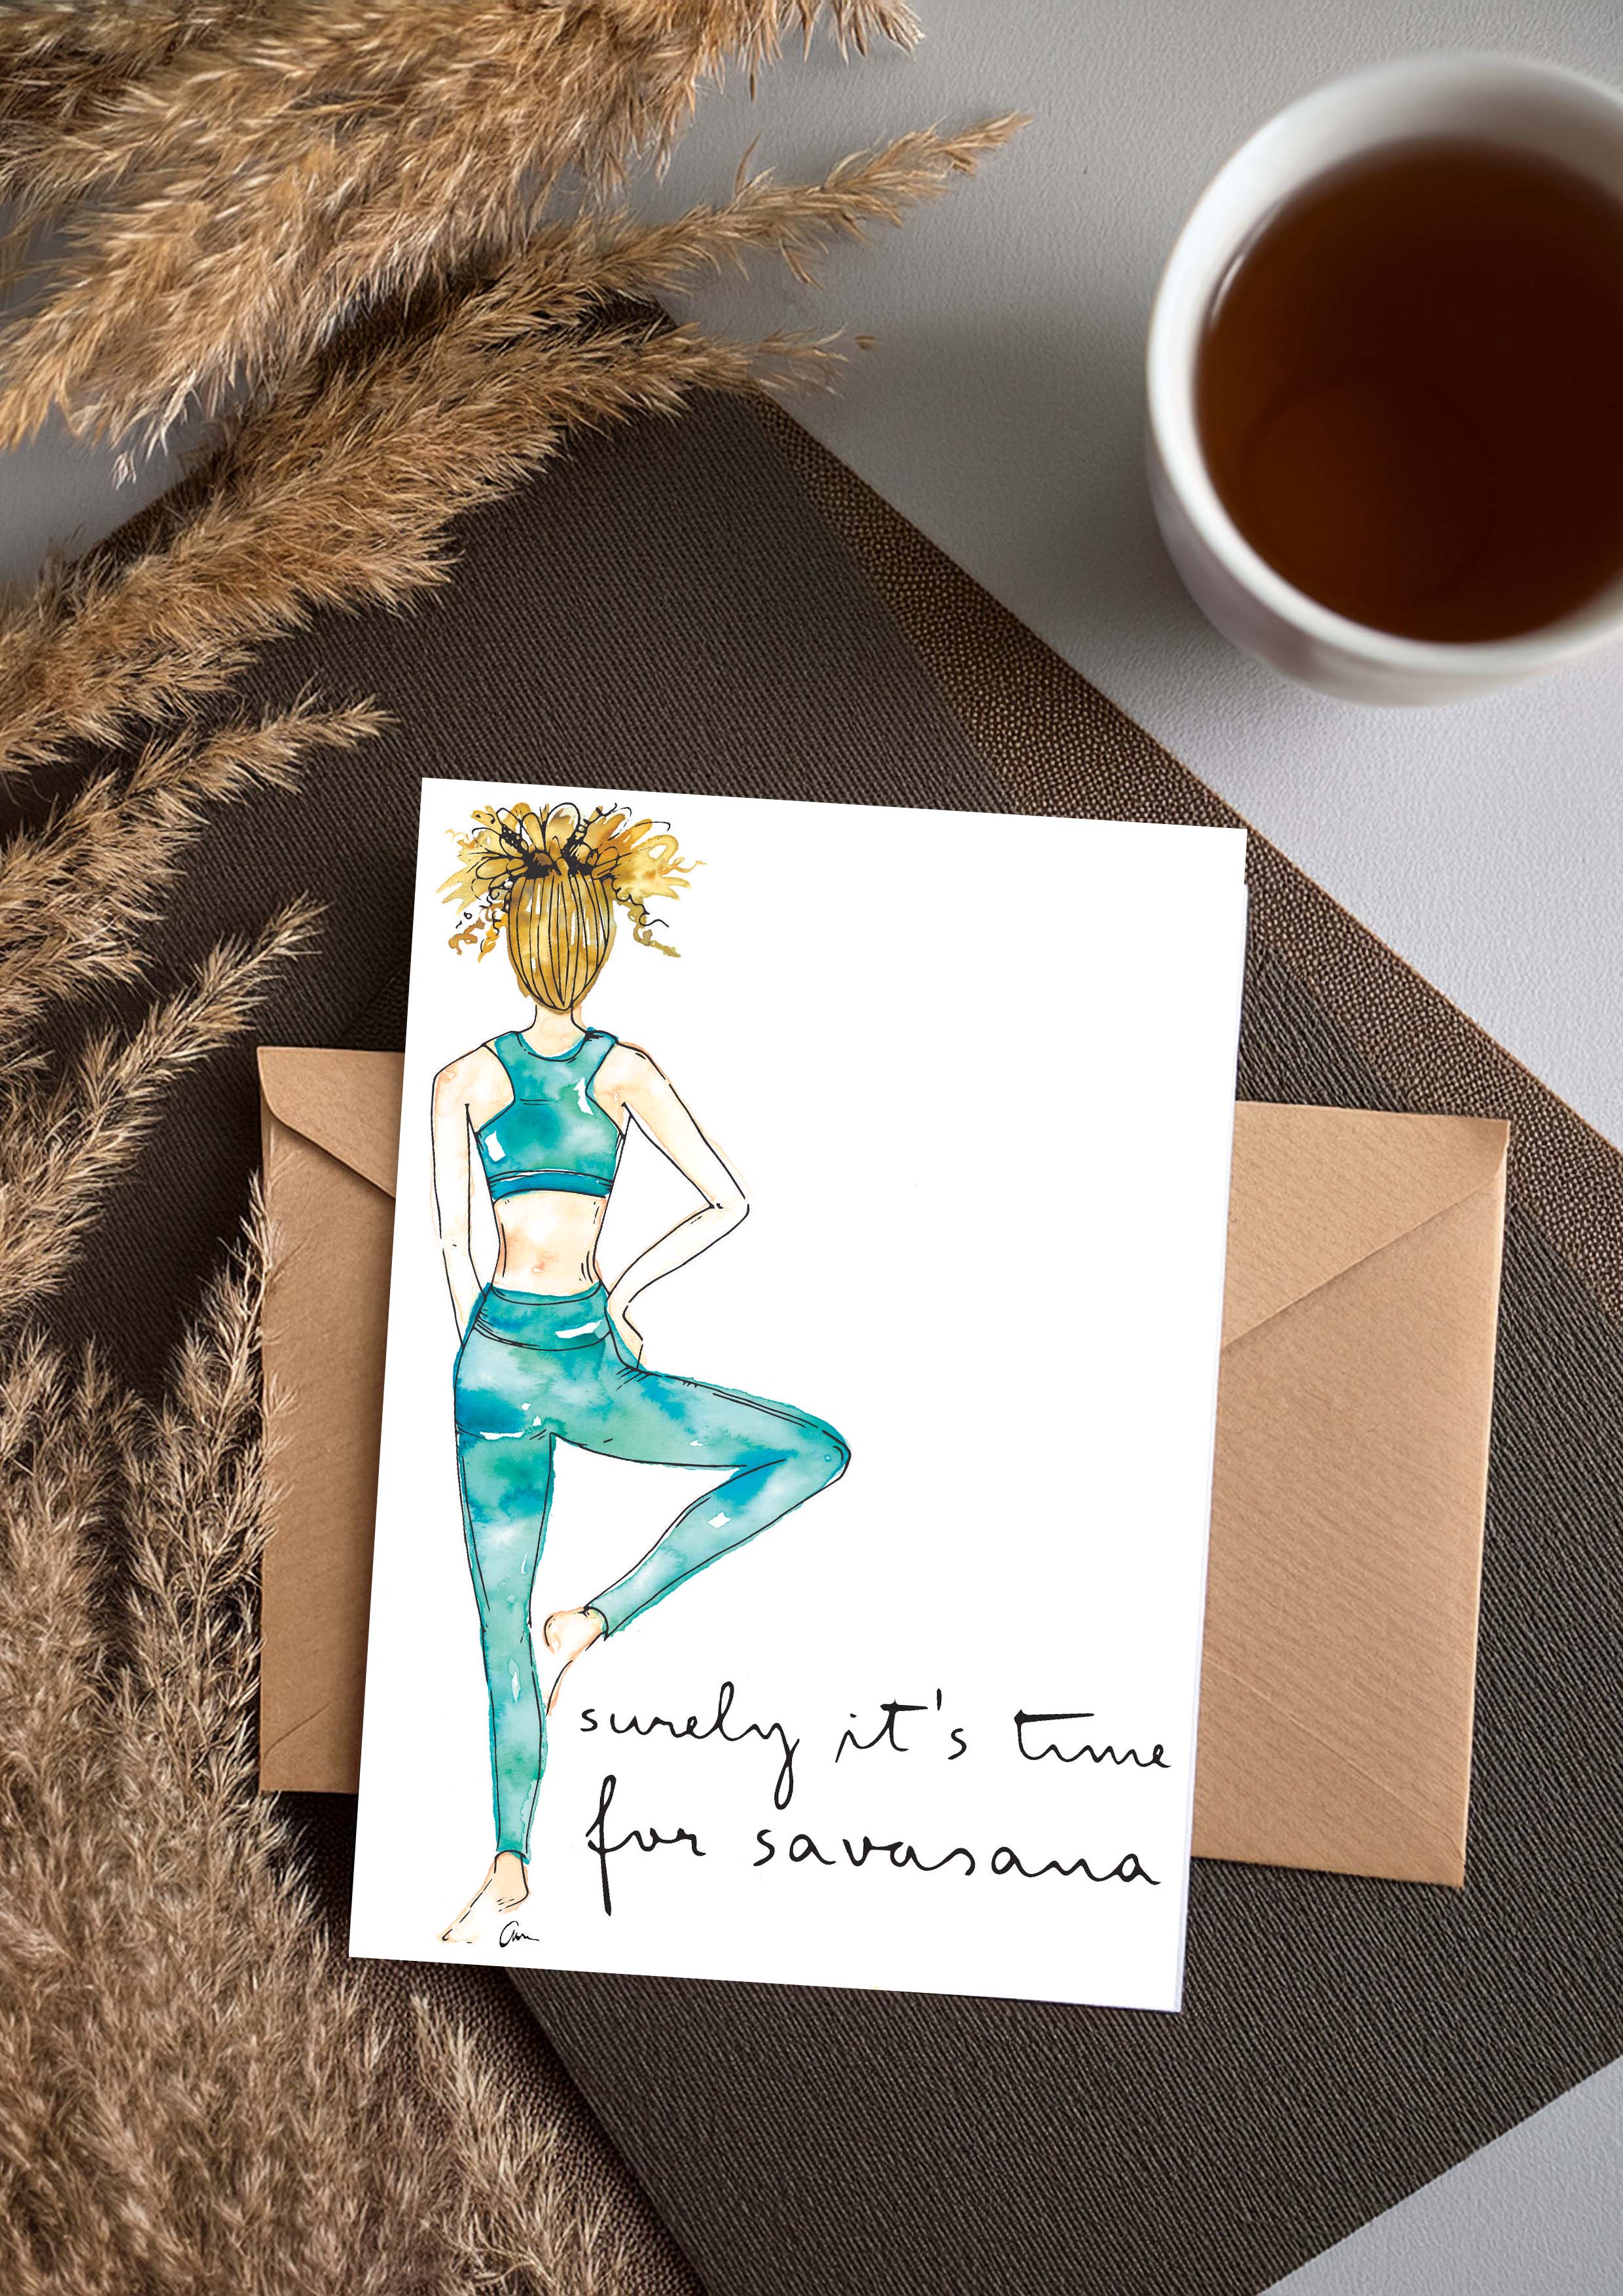 surely it's time
for savasana
Ann